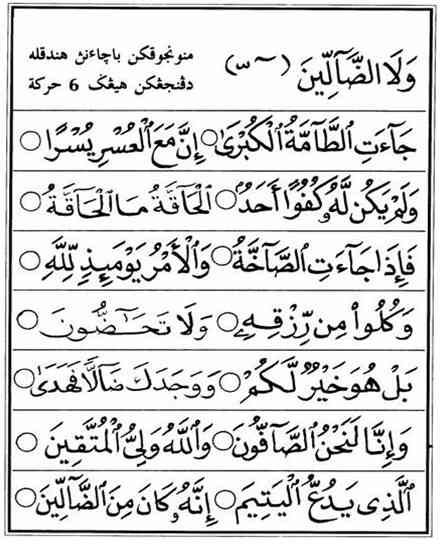 وَلَا الضَّآلِّينَ (~ س)
منونجوقكن باچاءنڽ هندقله
دڤنجڠكن هيڠڬ 6 حركة
جَآءَتِ ٱلطَّآمَّةُ ٱلْكُبْرَىٰ ○ إِنَّ مَعَ ٱلْعُسْرِ يُسْرًا ○
وَلَمْ يَكُن لَّهُۥ كُفُوًا أَحَدٌ ○ ٱلْحَآقَّةُ مَا ٱلْحَآقَّةُ ○
فَإِذَا جَآءَتِ ٱلصَّآخَّةُ ○ وَٱلْأَمْرُ يَوْمَئِذٍ لِّلَّهِ ○
وَكُلُوا۟ مِن رِّزْقِهِۦ ○ وَلَا تَحَـٰٓضُّونَ ○
بَلْ هُوَ خَيْرٌ لَّكُمْ ○ وَوَجَدَكَ ضَآلًّا فَهَدَىٰ ○
وَإِنَّا لَنَحْنُ ٱلصَّآفُّونَ ○ وَٱللَّهُ وَلِىُّ ٱلْمُتَّقِينَ ○
ٱلَّذِى يَدُعُّ ٱلْيَتِيمَ ○ إِنَّهُۥ كَانَ مِنَ ٱلضَّآلِّينَ ○